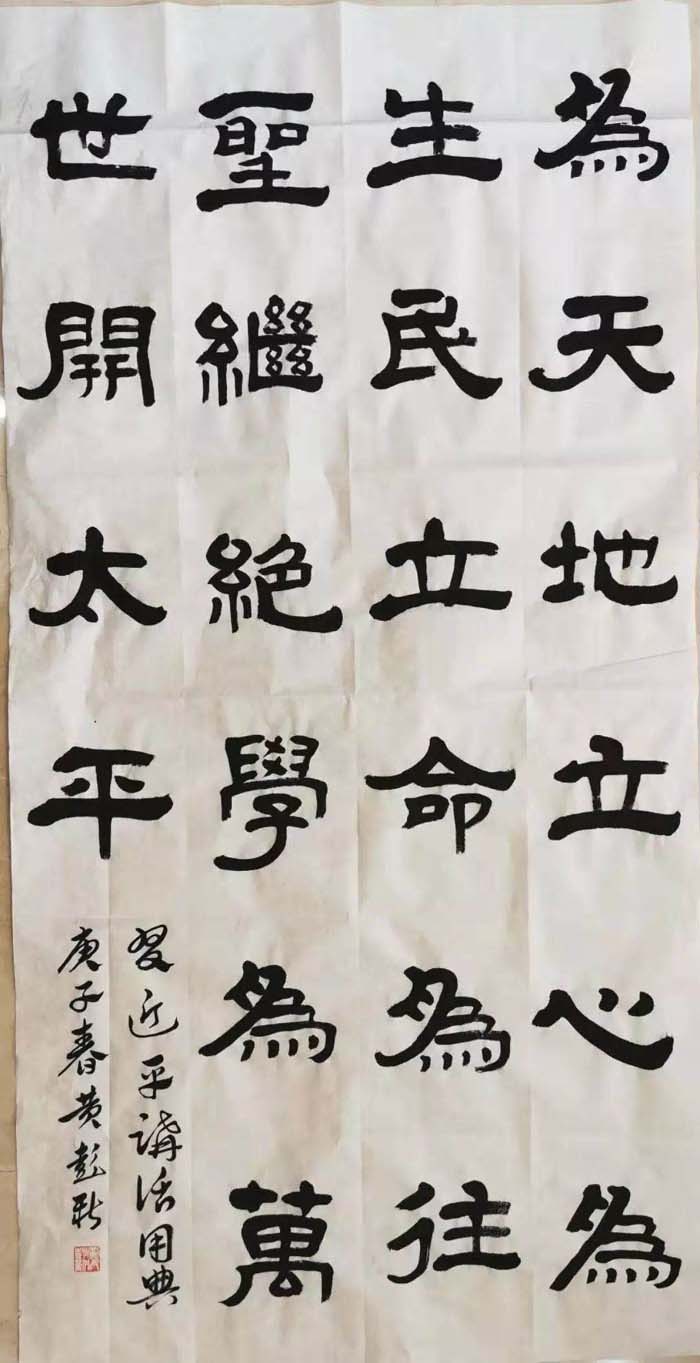 為天地立心為
生民立命為往
聖繼絕學為萬
世開太平
習近平講話用典
庚子春黄彭秋